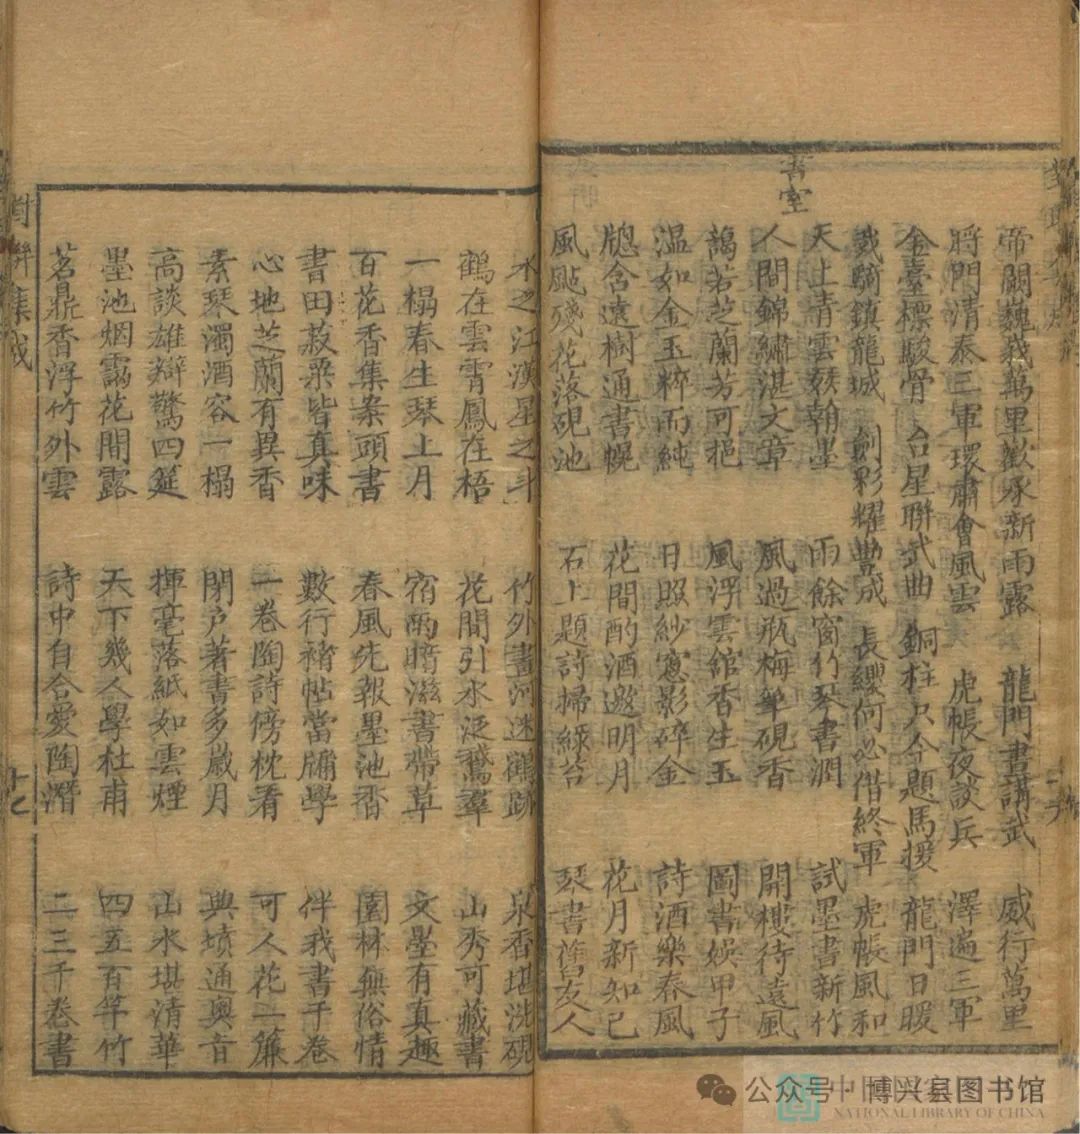 帝闕巍峩萬里歡承新雨露 龍門書講武 威行萬里
將門清泰三軍環肅會風雲 虎帳夜談兵 澤遍三軍
金臺標駿骨 台星聯武曲 銅柱只今題馬援 龍門日暖
鐵騎鎮龍城 劍彩耀豐城 長纓何必借終軍 虎帳風和
書室
天上青雲翰墨 雨餘窗竹琴書潤 試墨書新竹
人間錦繡湛文章 風過瓶梅筆硯香 開樽待遠風
藹若芝蘭芳可挹 風浮雲舘香生玉 圖書娛甲子
溫如金玉粹而純 日照紗窻影碎金 詩酒樂春風
牕含遠樹通書幌 花間酌酒邀明月 花月新知己
風颭殘花落硯池 石上題詩掃綠苔 琴書舊友人
水之江漢星之斗 竹外畫河迷鶴跡 泉香堪洗硯
鶴在雲霄鳳在梧 花間引水泛鵞羣 山秀可藏書
一榻春生琴上月 宿雨暗滋書帶草 文墨有真趣
百花香集案頭書 春風先報墨池香 園林無俗情
書田菽粟皆真味 數行禇帖當牕學 伴我書千卷
心地芝蘭有異香 一卷陶詩傍枕看 可人花一簾
素琴濁酒容一榻 閉户著書多歲月 典墳通奥音
高談雄辯驚四筵 揮毫落紙如雲煙 山水堪清華
墨池烟靄花間露 天下幾人學杜甫 四五百竿竹
茗鼎香浮竹外雲 詩中自合愛陶潛 二三千卷書
對聯集成
十七
公众号·博兴县图书馆
中国国家图书馆
NATIONAL LIBRARY OF CHINA